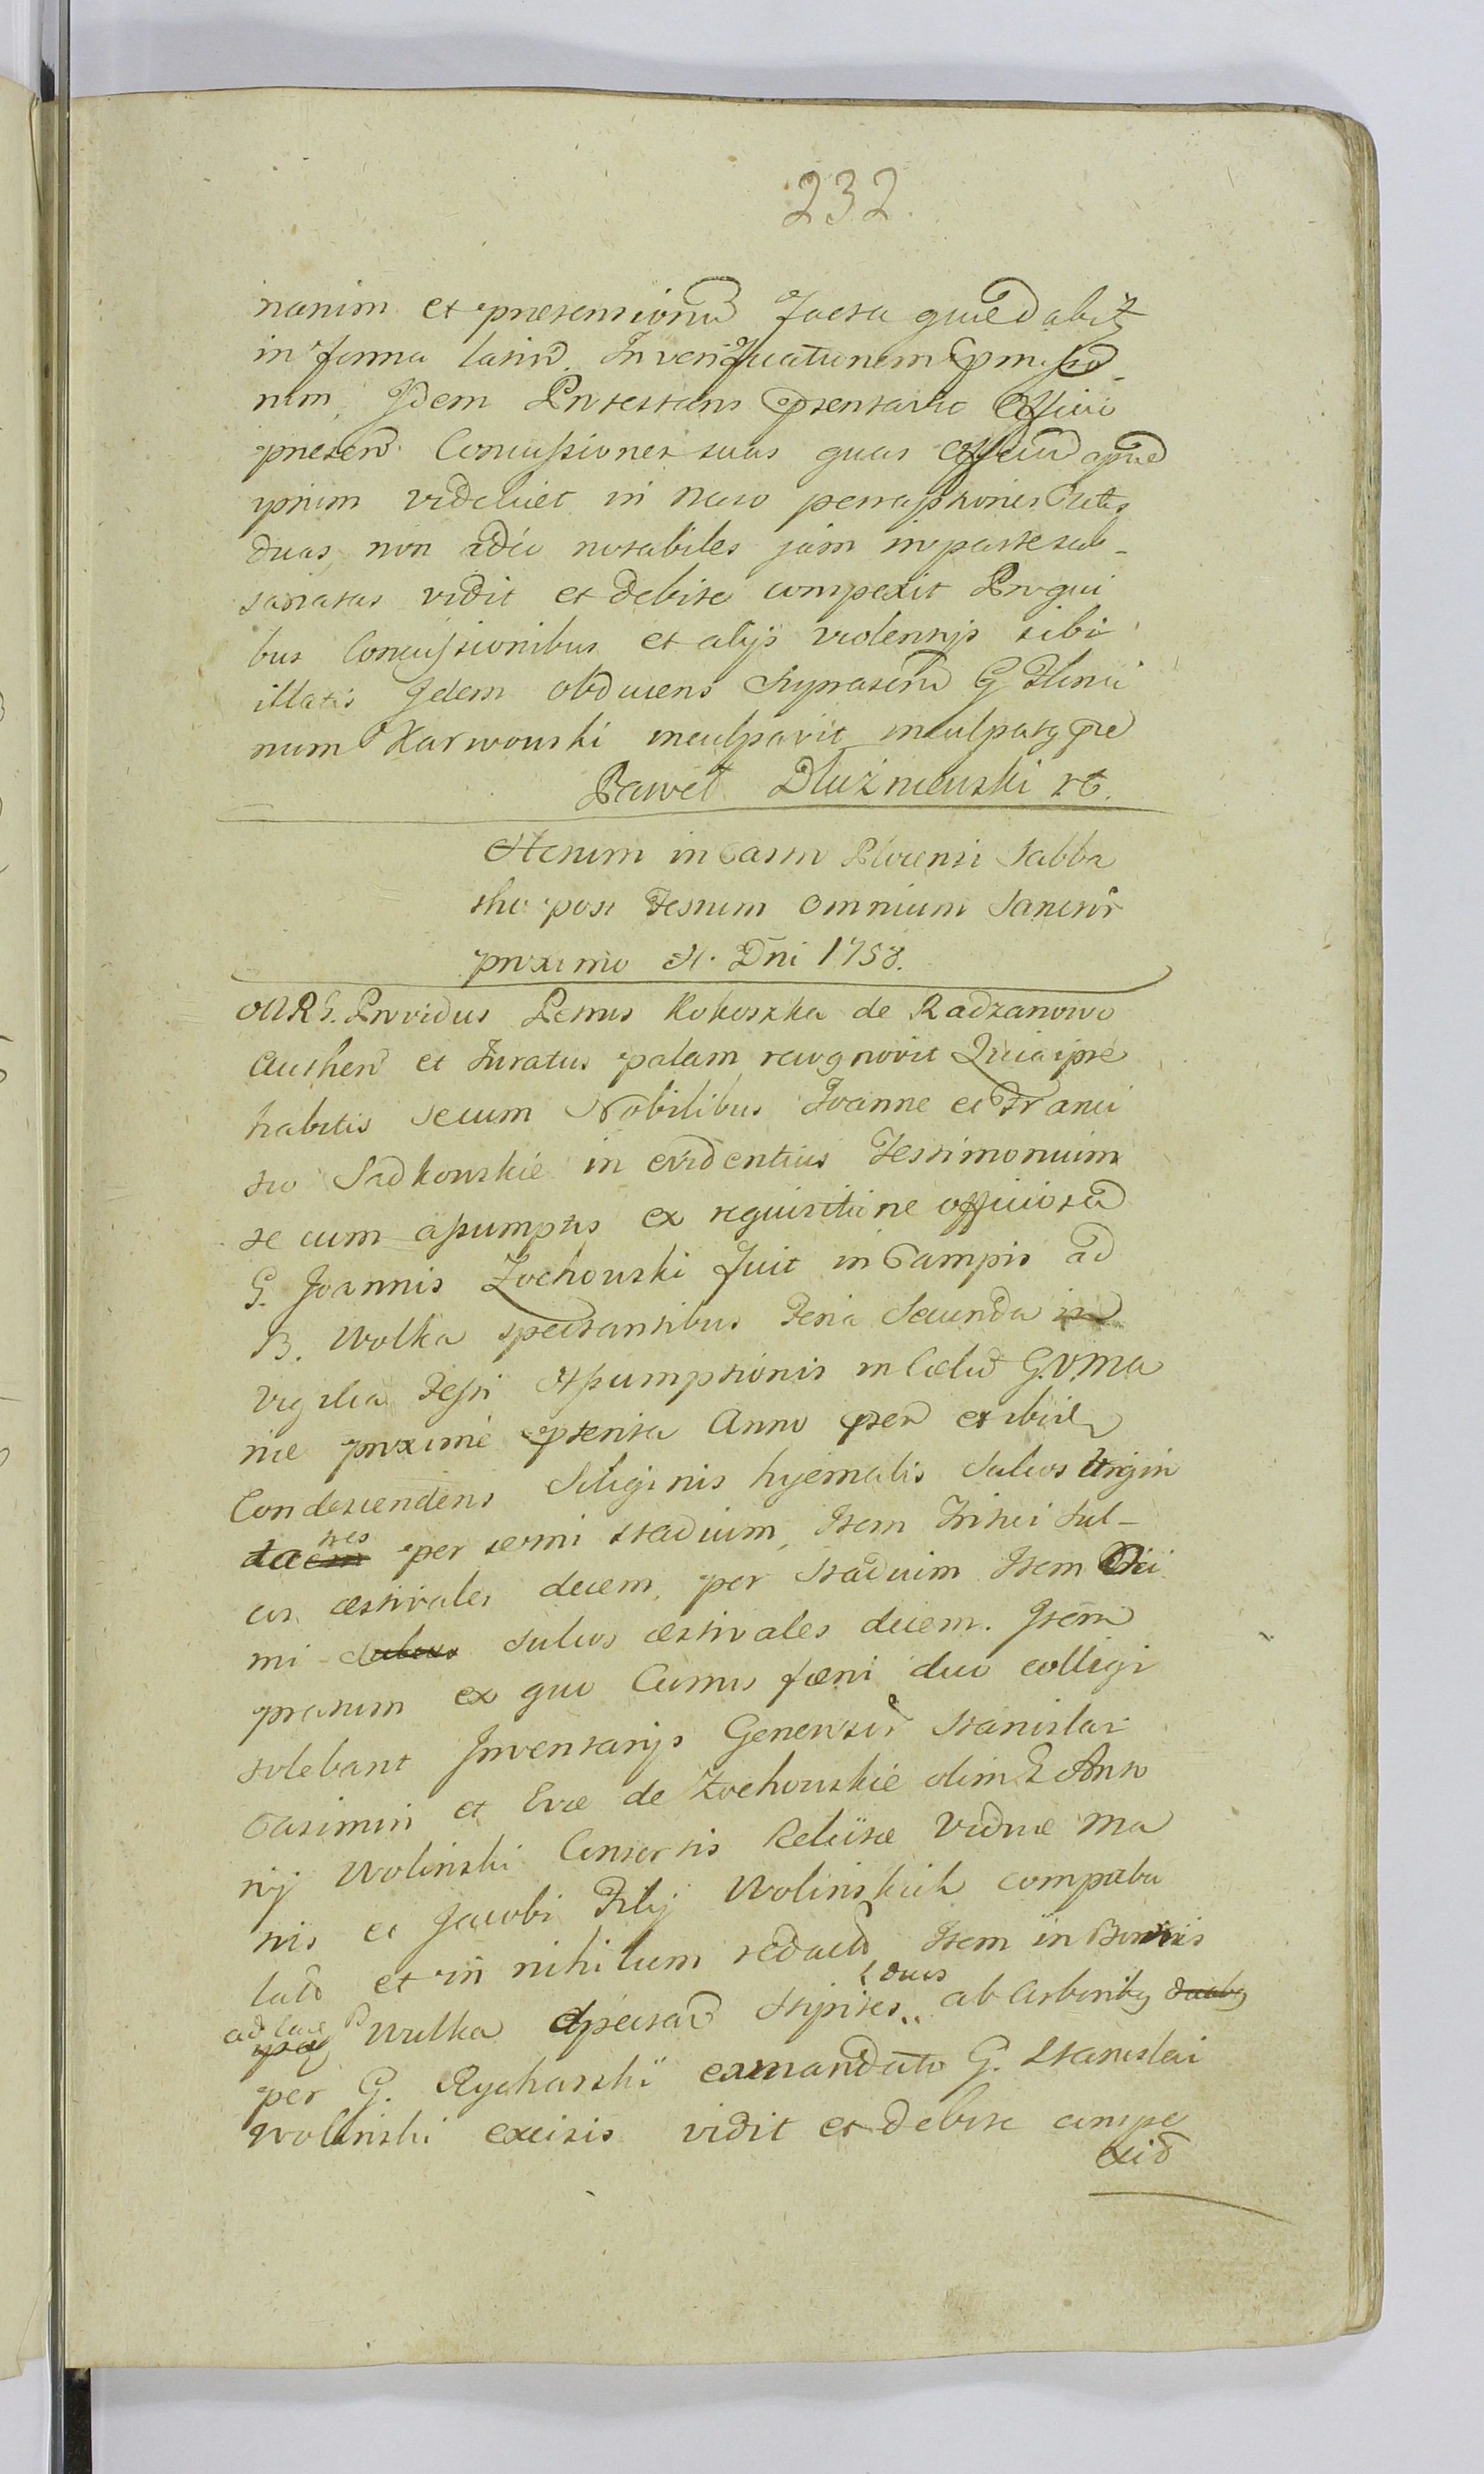 232.
narum et praetensionu facta quaed abitz
in forma latiu. In verificationem pmisso
rum, Idem Protestans psentavit Officio
praesen Concussiones suas quas Officiu apud
ipsum videlicet in naso perrasiones cutis
duas, non adeo notabiles jam in parte sub-
sanatas vidit et debite compexit Pro qui
bus Concussionibus et alijs violentijs sibi
illatis Idem obducens suprascru G
num Karwowski inculpavit inculpatq pre
Paweł Dłużniewski rt.
Actum in Castro Plocensi Sabba
tho post Festum Omnium Sanctor
proximo A. Dni 1758.
MRG. Providus Petrus Kokoszka de Radzanowo
Authen et Juratus palam recognovit Quia ipse
habitis secum Nobilibus Joanne et Franci
sco Sadkowskie in evidentius Testimonium
se cum assumptis ex requisitione officiosa
G. Joannis Żochowski fuit in Campis ad
B. Wolka spectantibus Feria Secunda in
vigilia Festi Assumptionis in Caelu G.V.Ma
riae proxime pterita Anno psen et ibid
Condescendens Siliginis hyemalis Sulcos trigin
ta tres per semi stadium, Item Tritici Sul-
cos aestivales decem, per Stadium Item
mi sulcos aestivales decem. Item
pratum ex quo Currus faeni duo colligi
solebant Inventarijs Generosor Stanislai
Casimiri et Evae de Żochowskie olim G Anto
nij Wolinski Consortis Relictae Viduae Ma
tris et Jacobi Filij Wolinskich compaeba
lato et in nihilum redacto Item in Bonis
ad Wulka spectan stipites duos ab Arboribq duabq
per G. Rycharski ex mandato G. Stanislai
Wolinski excisis vidit et debite compe
xid